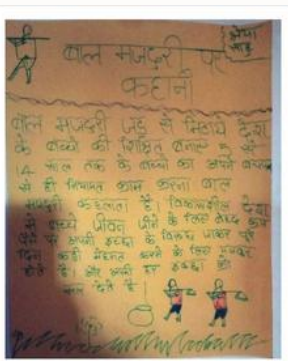 शोभा
साहु
बाल मजदुरी पर
कहानी
बाल मजदुरी जड़ से मिटाये देश
के बच्चो को शिक्षित बनाए 5 से
14 साल तक के बच्चो का अपने बचपन
से ही नियमित काम करना बाल
मजदुरी कहलाता है। विकासशील देशो
मे बच्चे जीवन जीने के लिए बेहद कम
पैसे पर अपनी इच्छा के विरूध जाकर पूरे
दिन कड़ी मेहनत करने के लिए मजबूर
होते है। और अपनी हर इच्छा को
मार देते है।